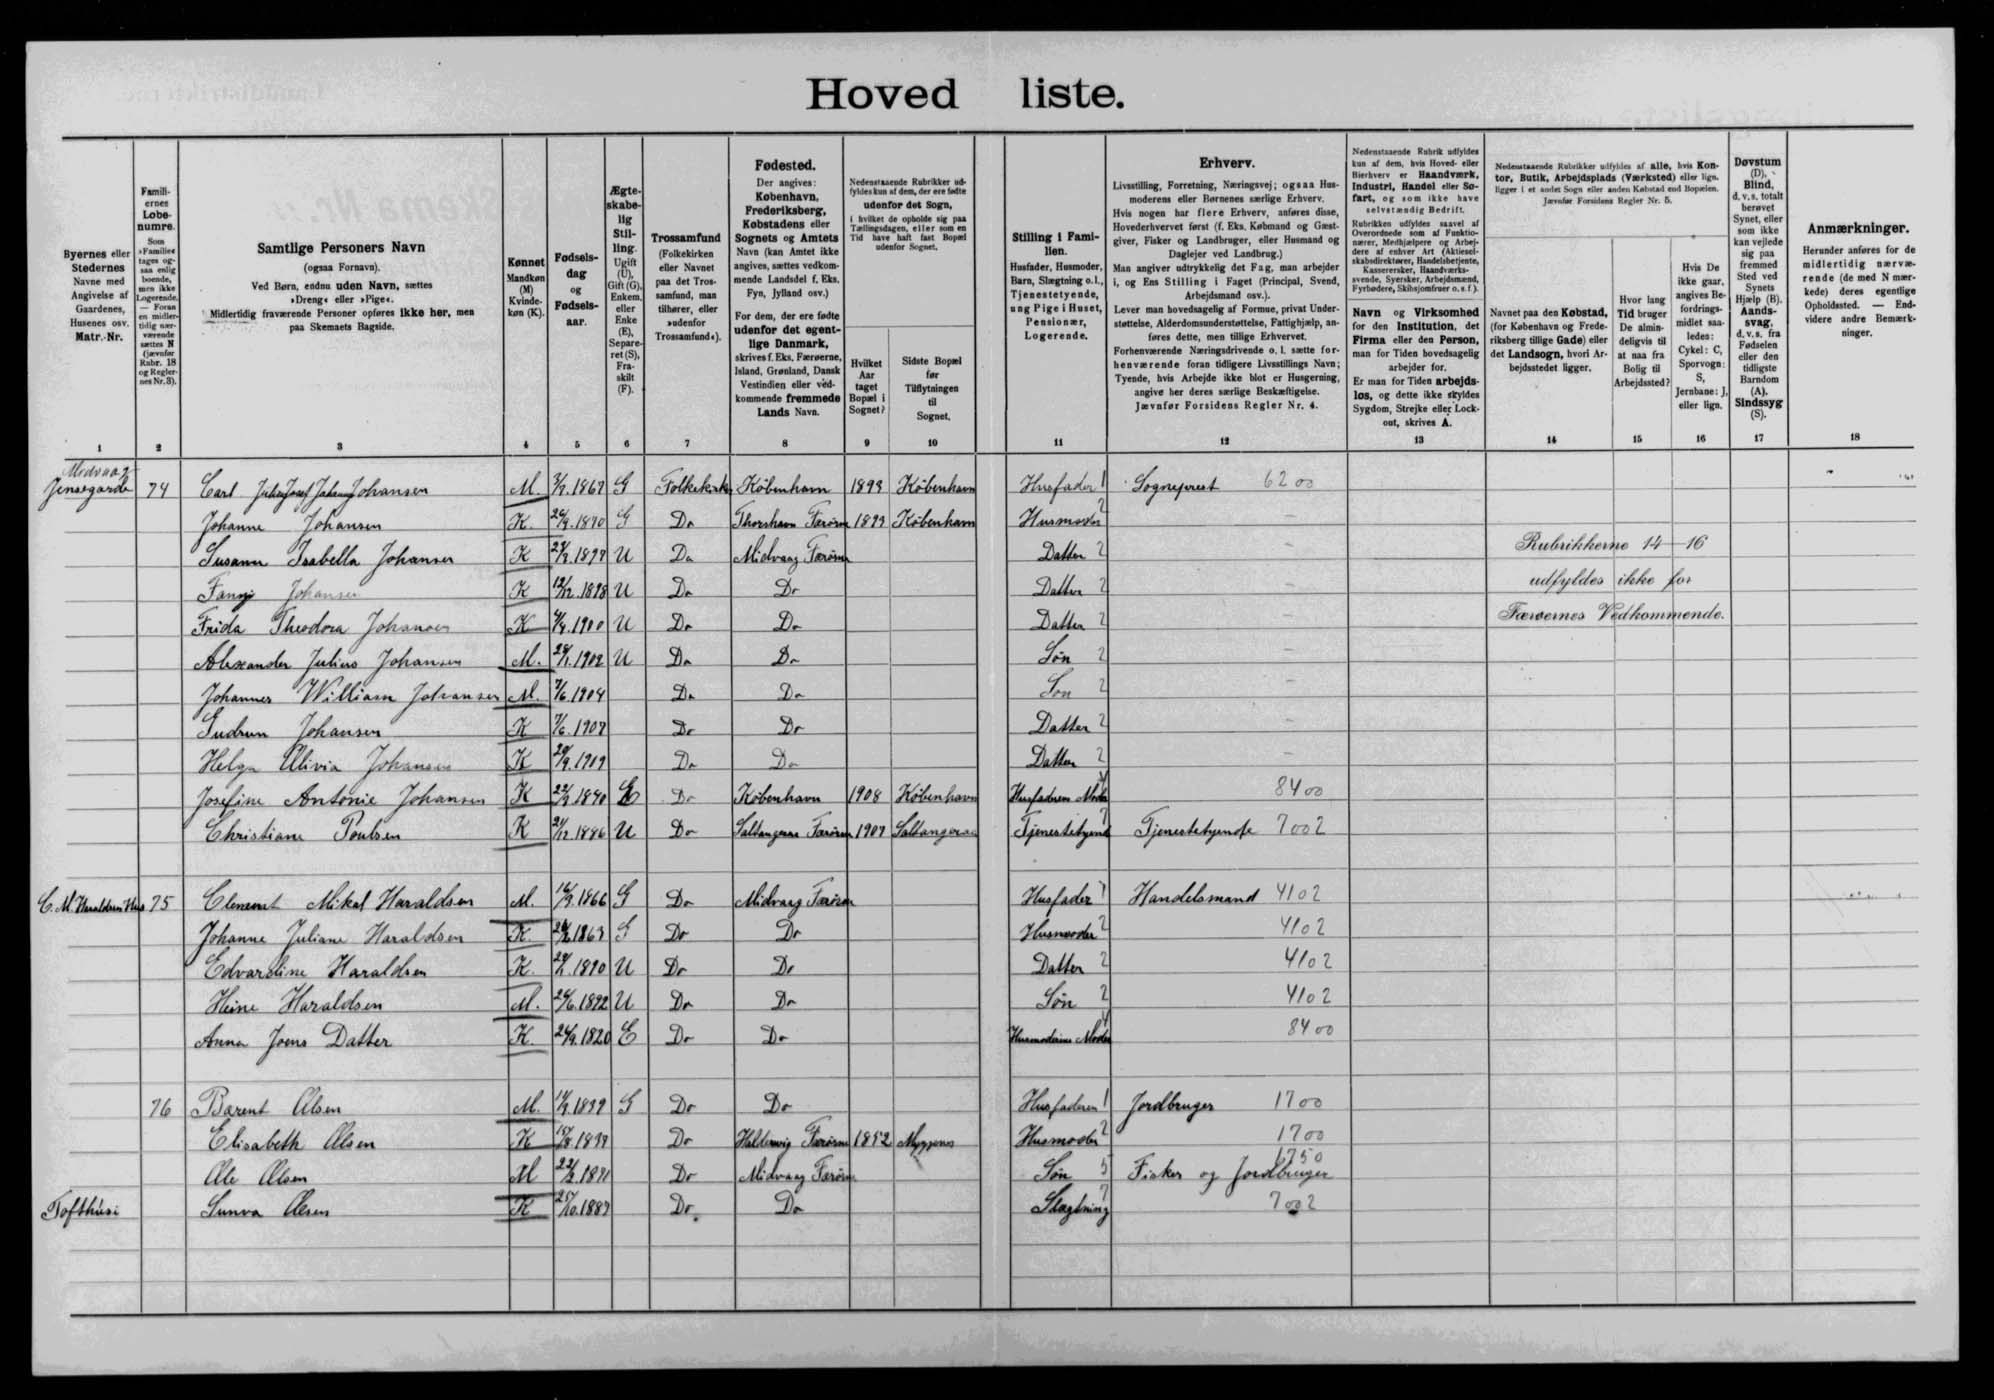 Hoved liste.
Byernes eller Stedernes Navne med Angivelse af Gaardenes, Husenes osv. Matr.-Nr.
Familiernes Løbenumre.
Som »Familie« tages ogsaa enlig boende, men ikke Logerende. — Foran en midlertidig nærværende sættes N (jævnfør Rubr. 18 og Regler nes Nr. 3).
Samtlige Personers Navn
(ogsaa Fornavn).
Ved Børn, endnu uden Navn, sættes
»Dreng« eller »Pige«.
Midlertidig fraværende Personer opføres ikke her, men
paa Skemaets Bagside.
Kønnet
Mandkøn (M) Kvindekøn (K).
Fødselsdag og Fødselsaar.
Ægteskabelig Stilling.
Ugift (U), Gift (G), Enkem. eller Enke (E), Separeret (S), Fraskilt (F).
Trossamfund
(Folkekirken eller Navnet paa det Trossamfund, man tilhører, eller »udenfor Trossamfund«).
Fødested.
Der angives:
København, Frederiksberg, Købstadens eller Sognets og Amtets Navn (kan Amtet ikke angives, sættes vedkommende Landsdel f. Eks. Fyn, Jylland osv.)
For dem, der ere fødte udenfor det egentlige Danmark, skrives f. Eks. Færøerne, Island, Grønland, Dansk Vestindien eller vedkommende fremmede Lands Navn.
Nedenstaaende Rubrikker udfyldes kun af dem, der ere fødte udenfor det Sogn, i hvilket de opholde sig paa Tællingsdagen, eller som en Tid have haft fast Bopæl udenfor Sognet.
Hvilket Aar taget Bopæl i Sognet?
Sidste Bopæl før Tilflytningen til Sognet.
Stilling i Familien.
Husfader, Husmoder, Barn, Slægtning o.l., Tjenestetyende, ung Pige i Huset, Pensionær, Logerende.
Erhverv.
Livsstilling, Forretning, Næringsvej; ogsaa Husmoderens eller Børnenes særlige Erhverv.
Hvis nogen har flere Erhverv, anføres disse, Hovederhvervet først (f. Eks. Købmand og Gæstgiver, Fisker og Landbruger, eller Husmand og Daglejer ved Landbrug.)
Man angiver udtrykkelig det Fag, man arbejder i, og Ens Stilling i Faget (Principal, Svend, Arbejdsmand osv.).
Lever man hovedsagelig af Formue, privat Understøttelse, Alderdomsunderstøttelse, Fattighjælp, anføres dette, men tillige Erhvervet.
Forhenværende Næringsdrivende o. l. sætte forhenværende foran tidligere Livsstillings Navn; Tyende, hvis Arbejde ikke blot er Husgerning, angive her deres særlige Beskæftigelse.
Jævnfør Forsidens Regler Nr. 4.
Nedenstaaende Rubrik udfyldes kun af dem, hvis Hoved- eller Bierhverv er Haandværk, Industri, Handel eller Søfart, og som ikke have selvstændig Bedrift.
Rubrikken udfyldes saavel af Overordnede som af Funktionærer, Medhjælpere og Arbejdere af enhver Art (Aktieselskabsdirektører, Handelsbetjente, Kasserersker, Haandværkssvende, Syersker, Arbejdsmænd, Fyrbødere, Skibsjomfruer o. s. f.).
Navn og Virksomhed for den Institution, det Firma eller den Person, man for Tiden hovedsagelig arbejder for.
Er man for Tiden arbejdsløs, og dette ikke skyldes Sygdom, Strejke eller Lockout, skrives A.
Nedenstaaende Rubrikker udfyldes af alle, hvis Kontor, Butik, Arbejdsplads (Værksted) eller lign. ligger i et andet Sogn eller anden Købstad end Bopælen.
Jævnfør Forsidens Regler Nr. 5.
Navnet paa den Købstad, (for København og Frederiksberg tillige Gade) eller det Landsogn, hvori Arbejdsstedet ligger.
Hvor lang Tid bruger De almindeligvis til at naa fra Bolig til Arbejdssted?
Hvis De ikke gaar, angives Befordringsmidlet saaledes: Cykel: C, Sporvogn: S, Jernbane: J, eller lign.
Døvstum (D), Blind, d. v. s. totalt berøvet Synet, eller som ikke kan vejlede sig paa fremmed Sted ved Synets Hjælp (B). Aandssvag, d. v. s. fra Fødselen eller den tidligste Barndom (A). Sindssyg (S).
Anmærkninger.
Herunder anføres for de midlertidig nærværende (de med N mærkede) deres egentlige Opholdssted. — Endvidere andre Bemærkninger.
1 2 3 4 5 6 7 8 9 10 11 12 13 14 15 16 17 18
Midvaag
Jensegarde 74 Carl Julius Josef Johannes Johansen M. 1869 G Folkekirken København 1899 København Husfader 1 Sognepræst 6200
Johanne Johansen K. 1870 G Do Thorshavn Færøerne 1899 København Husmoder 2
Susanne Isabella Johansen K U Do Midvaag Færøerne Datter 2
Rubrikkerne 14—16
Fanny Johansen K 12/12.1898 U Do Do Datter 2
udfyldes ikke for
Frida Theodora Johansen K 1900 U Do Do Datter 2
Færøernes Vedkommende.
Alexander Julius Johansen M. 1902 U Do Do Søn 2
Johannes William Johansen M. 7/6.1904 Do Do Søn 2
Gudrun Johansen K 1907 Do Do Datter 2
Helga Olivia Johansen K 29/9.1909 Do Do Datter 2
Josefine Antonie Johansen K 1840 E Do København 1908 København Husfaderens Moder 4 8400
Christiane Poulsen K 21/12.1886 U Do Saltangeraa Færøerne 1907 Saltangeraa Tjenestetyende 7 Tjenestetyende 7002
C. M. Haraldsens Hus 75 Clement Mikal Haraldsen M. 16/9.1866 G Do Midvaag Færøerne Husfader 1 Handelsmand 4102
Johanne Juliane Haraldsen K. 1863 G Do Do Husmoder 2 4102
Edvardine Haraldsen K. 1890 U Do Do Datter 2 4102
Heine Haraldsen M. 24/6.1892 U Do Do Søn 2 4102
Anna Joens Datter K. 24/9.1820 E Do Do Husmoderens Moder 4 8400
76 Barent Olsen M. G Do Do Husfaderen 1 Jordbruger 1700
Elisabeth Olsen K Do Haldersvig Færøerne 1852 Myggenæs Husmoder 2 1700
Ole Olsen M 1871 Do Midvaag Færøerne Søn 5 Fisker og Jordbruger 1750
Tofthúsi Sunva Olsen K 25/10.1889 Do. Do Slægtning 7 7002